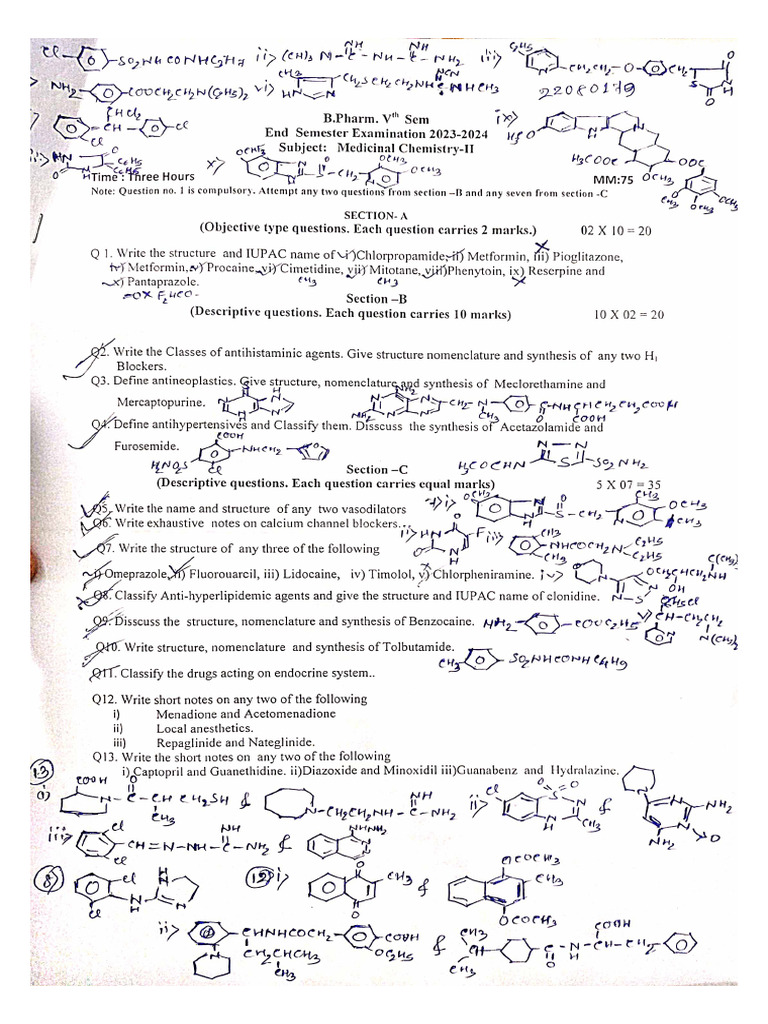 Cl SO₂NHCONHC₃H₇ ii) (CH₃)₂N-C-NH-C-NH₂ NH NH iii) C₂H₅ N CH₂CH₂-O CH₂ O S NH O
NH₂ COOCH₂CH₂N(C₂H₅)₂ vi) CH₃ HN N CH₂SCH₂CH₂NHC-NHCH₃ NCN 22080179
B.Pharm. Vth Sem
CHCl₂ Cl CH Cl
End Semester Examination 2023-2024 ix)
Subject: Medicinal Chemistry-II
H₃CO H₃COOC OCH₃ OOC OCH₃ OCH₃ OCH₃
HN O C₆H₅ C₆H₅ x) OCHF₂ N N H S O CH₂ OCH₃ OCH₃
Time : Three Hours MM:75
Note: Question no. 1 is compulsory. Attempt any two questions from section –B and any seven from section -C
SECTION- A
(Objective type questions. Each question carries 2 marks.) 02 X 10 = 20
Q 1. Write the structure and IUPAC name of i)Chlorpropamide, ii) Metformin, iii) Pioglitazone,
iv) Metformin, v) Procaine, vi) Cimetidine, vii) Mitotane, viii)Phenytoin, ix) Reserpine and
x) Pantaprazole.
Section –B
(Descriptive questions. Each question carries 10 marks) 10 X 02 = 20
Q2. Write the Classes of antihistaminic agents. Give structure nomenclature and synthesis of any two H₁
Blockers.
Q3. Define antineoplastics. Give structure, nomenclature and synthesis of Meclorethamine and
Mercaptopurine.
Q4. Define antihypertensives and Classify them. Disscuss the synthesis of Acetazolamide and
Furosemide. COOH NHCH₂ O H₂NO₂S Cl H₃COCHN N N S SO₂NH₂
Section –C
(Descriptive questions. Each question carries equal marks) 5 X 07 = 35
Q5. Write the name and structure of any two vasodilators
Q6. Write exhaustive notes on calcium channel blockers.
Q7. Write the structure of any three of the following
i) Omeprazole, ii) Fluorouarcil, iii) Lidocaine, iv) Timolol, v) Chlorpheniramine.
Q8. Classify Anti-hyperlipidemic agents and give the structure and IUPAC name of clonidine.
Q9. Disscuss the structure, nomenclature and synthesis of Benzocaine. NH₂ COOC₂H₅
Q10. Write structure, nomenclature and synthesis of Tolbutamide. CH₃ SO₂NHCONHC₄H₉
Q11. Classify the drugs acting on endocrine system..
Q12. Write short notes on any two of the following
i) Menadione and Acetomenadione
ii) Local anesthetics.
iii) Repaglinide and Nateglinide.
Q13. Write the short notes on any two of the following
i) Captopril and Guanethidine. ii)Diazoxide and Minoxidil iii)Guanabenz and Hydralazine.
13
i) COOH N-C-CH CH₂SH O CH₃ & N-CH₂CH₂NH-C-NH₂ NH ii) Cl O O S N N H CH₃ & N NH₂ N NH₂ O
iii) Cl CH=N-NH-C-NH₂ NH Cl & NHNH₂ N N
8) Cl Cl N H N H N 12) i) O CH₃ O & OCOCH₃ CH₃ OCOCH₃
ii) CHNHCOCH₂ COOH OC₂H₅ CH₂CHCH₃ CH₃ N & CH₃ CH CH₃ C-N-CH-CH₂ O H COOH